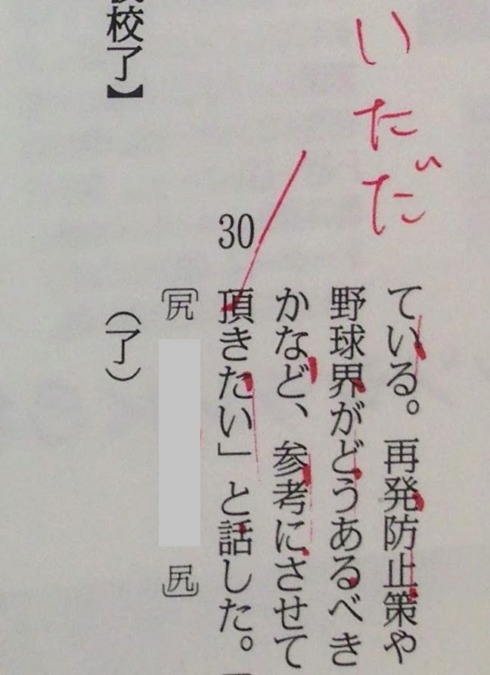 いただ
ている。再発防止策や
野球界がどうあるべき
かなど、参考にさせて
30
頂きたい」と話した。
〔尻 尻〕
（了）
校了】